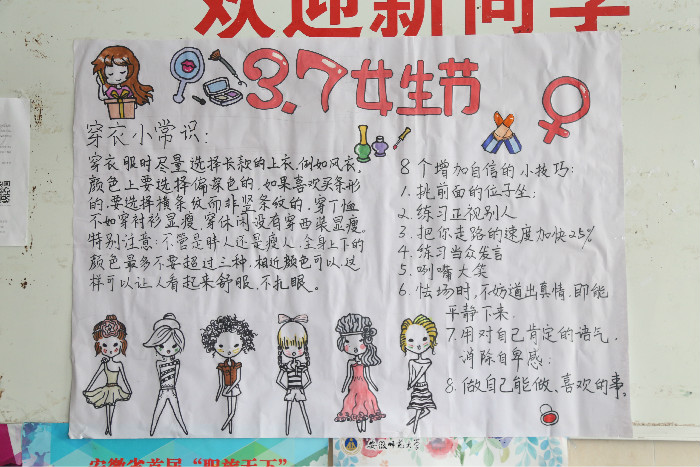 欢迎新同学
3.7女生节
穿衣小常识:
穿衣服时尽量选择长款的上衣,例如风衣,
颜色上要选择偏深色的,如果喜欢买条形
的,要选择横条纹而非竖条纹的,穿T恤
不如穿衬衫显瘦,穿休闲没有穿西装显瘦。
特别注意:不管是胖人还是瘦人,全身上下的
颜色最多不要超过三种,相近颜色可以,这
样可以让人看起来舒服,不扎眼。
8个增加自信的小技巧:
1.挑前面的位子坐;
2.练习正视别人
3.把你走路的速度加快25%
4.练习当众发言
5.咧嘴大笑
6.怯场时,不妨道出真情,即能
平静下来.
7.用对自己肯定的语气,
消除自卑感;
8.做自己能做、喜欢的事。
安徽师范大学